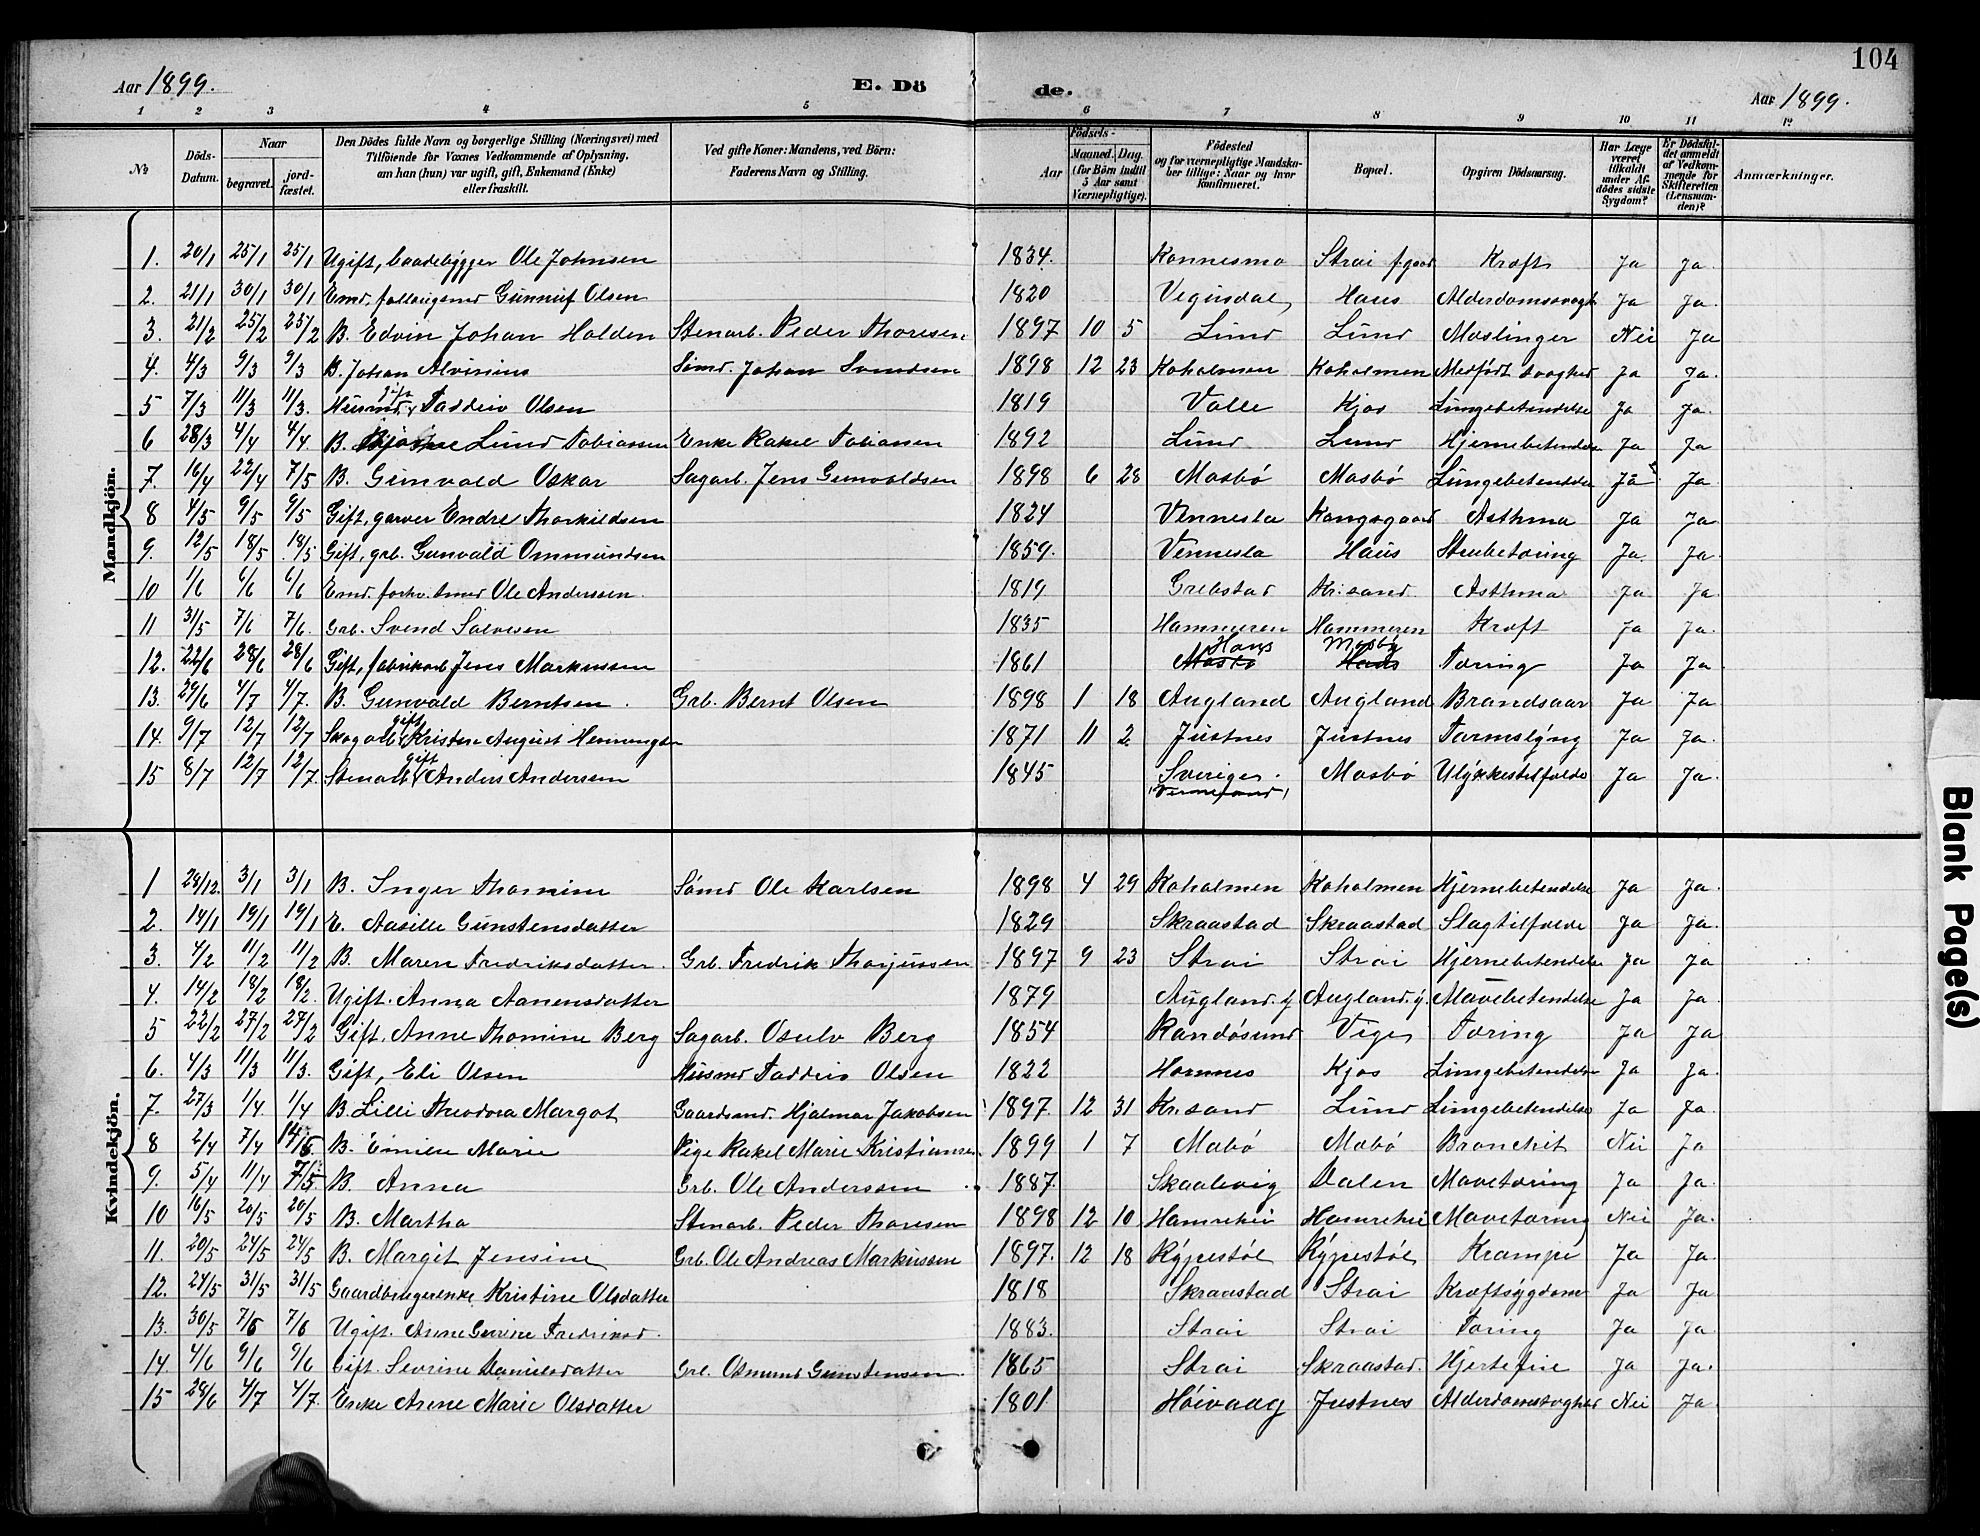 104
Aar 1899.
E. Dö
de.
Aar 1899.
1 2 3 4 5 6 7 8 9 10 11 12
No
Döds-Datum.
Naar
begravet.
jord-fæstet.
Den Dödes fulde Navn og borgerlige Stilling (Næringsvei) med
Tilföiende for Voxnes Vedkommende af Oplysning,
om han (hun) var ugift, gift, Enkemand (Enke)
eller fraskilt.
Ved gifte Koner: Mandens, ved Börn:
Faderens Navn og Stilling.
Aar
Födsels-
Maaned. Dag.
(for Börn indtil
5 Aar samt
Værnepligtige).
Födested
og for værnepligtige Mandska-
ber tillige: Naar og hvor
konfirmeret.
Bopæl.
Opgiven Dödsaarsag.
Har Læge
været
tilkaldt
under Af-
dödes sidste
Sygdom?
Er Dödsfal-
det anmeldt
af Vedkom-
mende for
Skifteretten
(Lensman-
den)?
Anmærkninger.
Mandkjön.
1. 20/1 25/1 25/1 Ugift, baadebygger Ole Johnsen 1834. Konnesmo Strai f.gaard Kræft Ja Ja.
2. 21/1 30/1 30/1 Emd. Gunnuf Olsen 1820 Vegusdal, Haus Ja Ja.
3. 21/2 25/2 25/2 B. Edvin Johan Holden Stenarb. Peder Thoresen 1897 10 5 Lund Lund Meslinger Nei Ja
4. 4/3 9/3 9/3 B. Johan Alvinius Sömd. Johan Svendsen 1898 12 23 Koholmen Koholmen Medfödt svaghed Ja Ja.
5 7/3 11/3 11/3. Husmd. gift Taddeiv Olsen 1819 Valle Kjos Lungebetendelse Ja Ja.
6 28/3 4/4 4/4 B. Bjarne Lund Tobiassen Enke Rakel Tobiassen 1892 Lund Lund Hjernebetendelse Ja Ja
7. 16/4 22/4 7/5 B. Gunvald Oskar Sagarb. Jens Gunvaldsen 1898 6 28 Mosbö Mosbö Lungebetendelse Ja Ja
8 4/5 9/5 9/5 Gift, garver Endre Thorkildsen 1824 Vennesla Kongsgaard Asthma Ja Ja
9. 12/5 18/5 18/5 Gift, grb. Gunvald Ommundsen 1859. Vennesla Haus Strubetæring Ja. Ja.
10 1/6 6/6 6/6 Emd. forhv. smed Ole Anderssen. 1819 Grebstad Kr.sand. Asthma Ja Ja.
11 31/5 7/6 7/6. Grb. Svend Salvesen 1835 Hammeren Hammeren Kræft Ja Ja.
12. 22/6 28/6 28/6 Gift, fabrikarb Jens Markussen 1861 Mosbö Haus Haus Mosbö Tæring Ja Ja
13. 29/6 4/7 4/7. B. Gunvald Berntsen. Grb. Bernt Olsen 1898 1 18 Augland Augland Brandsaar Ja Ja
14. 9/7 12/7 12/7 Skogarb. gift Kristen August Henningsen 1871 11 2. Justnes Justnes Tarmslyng Ja Ja.
15 8/7 12/7 12/7. Stenarb. gift Anders Andersen 1845 Sverige. Mosbö Ulykkestilfælde Ja Ja.
Kvindekjön.
1 28/12. 3/1 3/1 B. Inger Thomine Sömd Ole Karlsen 1898 4 29 Koholmen Koholmen Hjernebetendelse Ja Ja.
2. 14/1 19/1 19/1 E. Aasille Gunstensdatter 1829 Skraastad Skraastad Slagtilfælde Ja Ja.
3. 4/2 11/2 11/2 B. Maren Fredriksdatter. Grb. Fredrik Thorjussen 1897 9 23 Strai Strai Hjernebetendelse Ja Ja
4. 14/2 18/2 18/2. Ugift. Anna Aanensdatter 1879 Augland. y. Augland. y. Mavebetendelse Ja Ja.
5 22/2 27/2 27/2 Gift, Anne Thomine Berg Sagarb. Osulv Berg 1854 Randösund Vige Tæring Ja Ja
6. 4/3 11/3 11/3. Gift, Eli Olsen Husmd Taddeiv Olsen 1822 Hornnes Kjos Lungebetendelse Ja Ja.
7. 27/3 1/4 1/4 B. Lilli Theodora Margot Gaardsmd. Hjalmar Jakobsen 1897. 12 31 Kr.sand Lund Lungebetendelse Ja Ja.
8 2/4 7/4 14/5. B. Emilie Marie Pige Rakel Marie Kristiansen. 1899 1 7 Mobö Mobö Bronchit Nei Ja
9. 5/4 11/4 7/5. B. Anna Grb. Ole Anderssen 1887. Skaalevig Dalen Mavetæring Ja Ja.
10 16/5 20/5 20/5 B. Martha Stenarb. Peder Thoresen 1898 12 10 Homrehei Homrehei Mavetæring Nei Ja.
11. 20/5 24/5 24/5 B. Margit Jensine Grb. Ole Andreas Markussen 1897. 12 18 Rypestöl Rypestöl Krampe Ja Ja.
12. 24/5 31/5 31/5 Gaardbrugerenke Kristine Olsdatter 1818 Skraastad Strai Kræftsygdom Ja Ja
13. 30/5 7/6 7/6 Ugift. Anne Gurine Fredriksd. 1883. Strai Strai Tæring Ja Ja.
14. 4/6 9/6 9/6 Gift. Sevrine Danielsdatter Grb. Osmund Gunstensen. 1865 Strai Skraastad. Hjertefeil Ja Ja.
15 28/6 4/7 4/7. Enke Anne Marie Olsdatter 1801. Höivaag Justnes Alderdomssvaghed Nei Ja.
Blank Page(s)